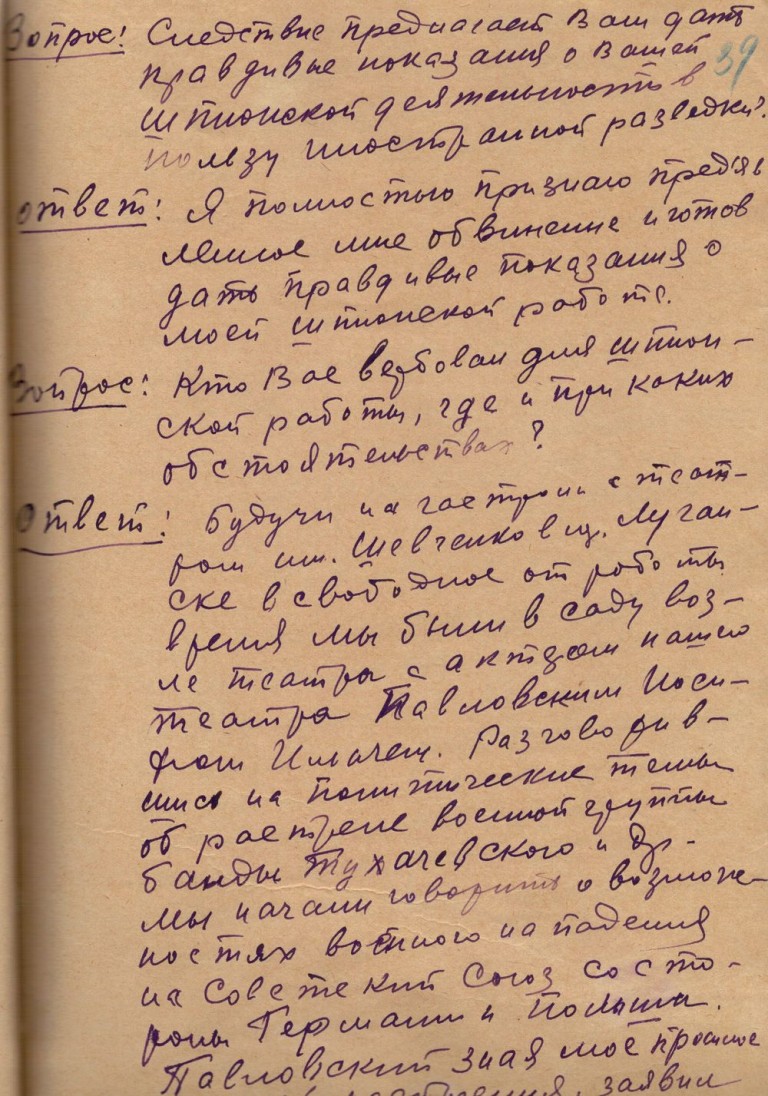 Вопрос: Следствие предлагает Вам дать
правдивые показания о Вашей
39
шпионской деятельность в
пользу иностранной разведки?
Ответ: Я полностью признаю предъяв
ленное мне обвинение и готов
дать правдивые показания о
моей шпионской работе.
Вопрос: Кто Вас вербовал для шпион-
ской работы, где и при каких
обстоятельствах?
Ответ: Будучи на гастроли с теат-
ром им. Шевченко в гор. Луган-
ске в свободное от работы
время мы были в саду воз-
ле театра с актером нашего
театра Павловским Иоси-
фом Ильичем. Разговорив-
шись на политические темы
об растреле военной группы
банды Тухачевского и др.
мы начали говорить о возмож-
ностях военного нападения
на Советский Союз со сто-
роны Германии и Польши.
Павловский зная моё прошлое
заявил